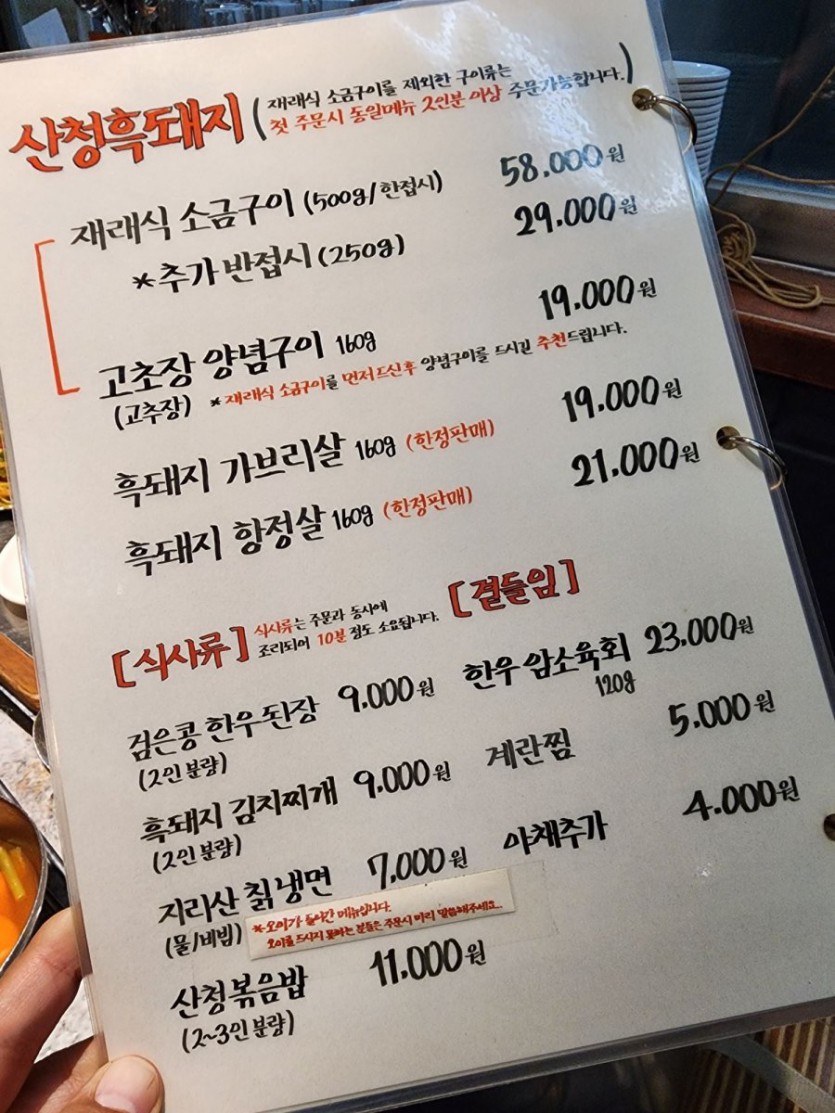 산청흑돼지 (재래식 소금구이를 제외한 구이류는
첫 주문시 동일메뉴 2인분 이상 주문가능합니다.)
재래식 소금구이 (500g/한접시) 58.000원
*추가 반접시 (250g) 29.000원
고초장 양념구이 160g 19.000원
(고추장) *재래식 소금구이를 먼저 드신후 양념구이를 드시길 추천드립니다.
흑돼지 가브리살 160g (한정판매) 19.000원
흑돼지 항정살 160g (한정판매) 21.000원
[식사류] 식사류는 주문과 동시에
조리되어 10분 정도 소요됩니다.
검은콩 한우된장 9.000원
(2인 분량)
흑돼지 김치찌개 9.000원
(2인 분량)
지리산 칡냉면 7,000원
(물/비빔) *오이가 들어간 메뉴입니다.
오이를 드시지 못하는 분들은 주문시 미리 말씀해주세요.
산청볶음밥 11.000원
(2~3인 분량)
[곁들임]
한우 암소육회 23.000원
120g
계란찜 5.000원
야채추가 4.000원